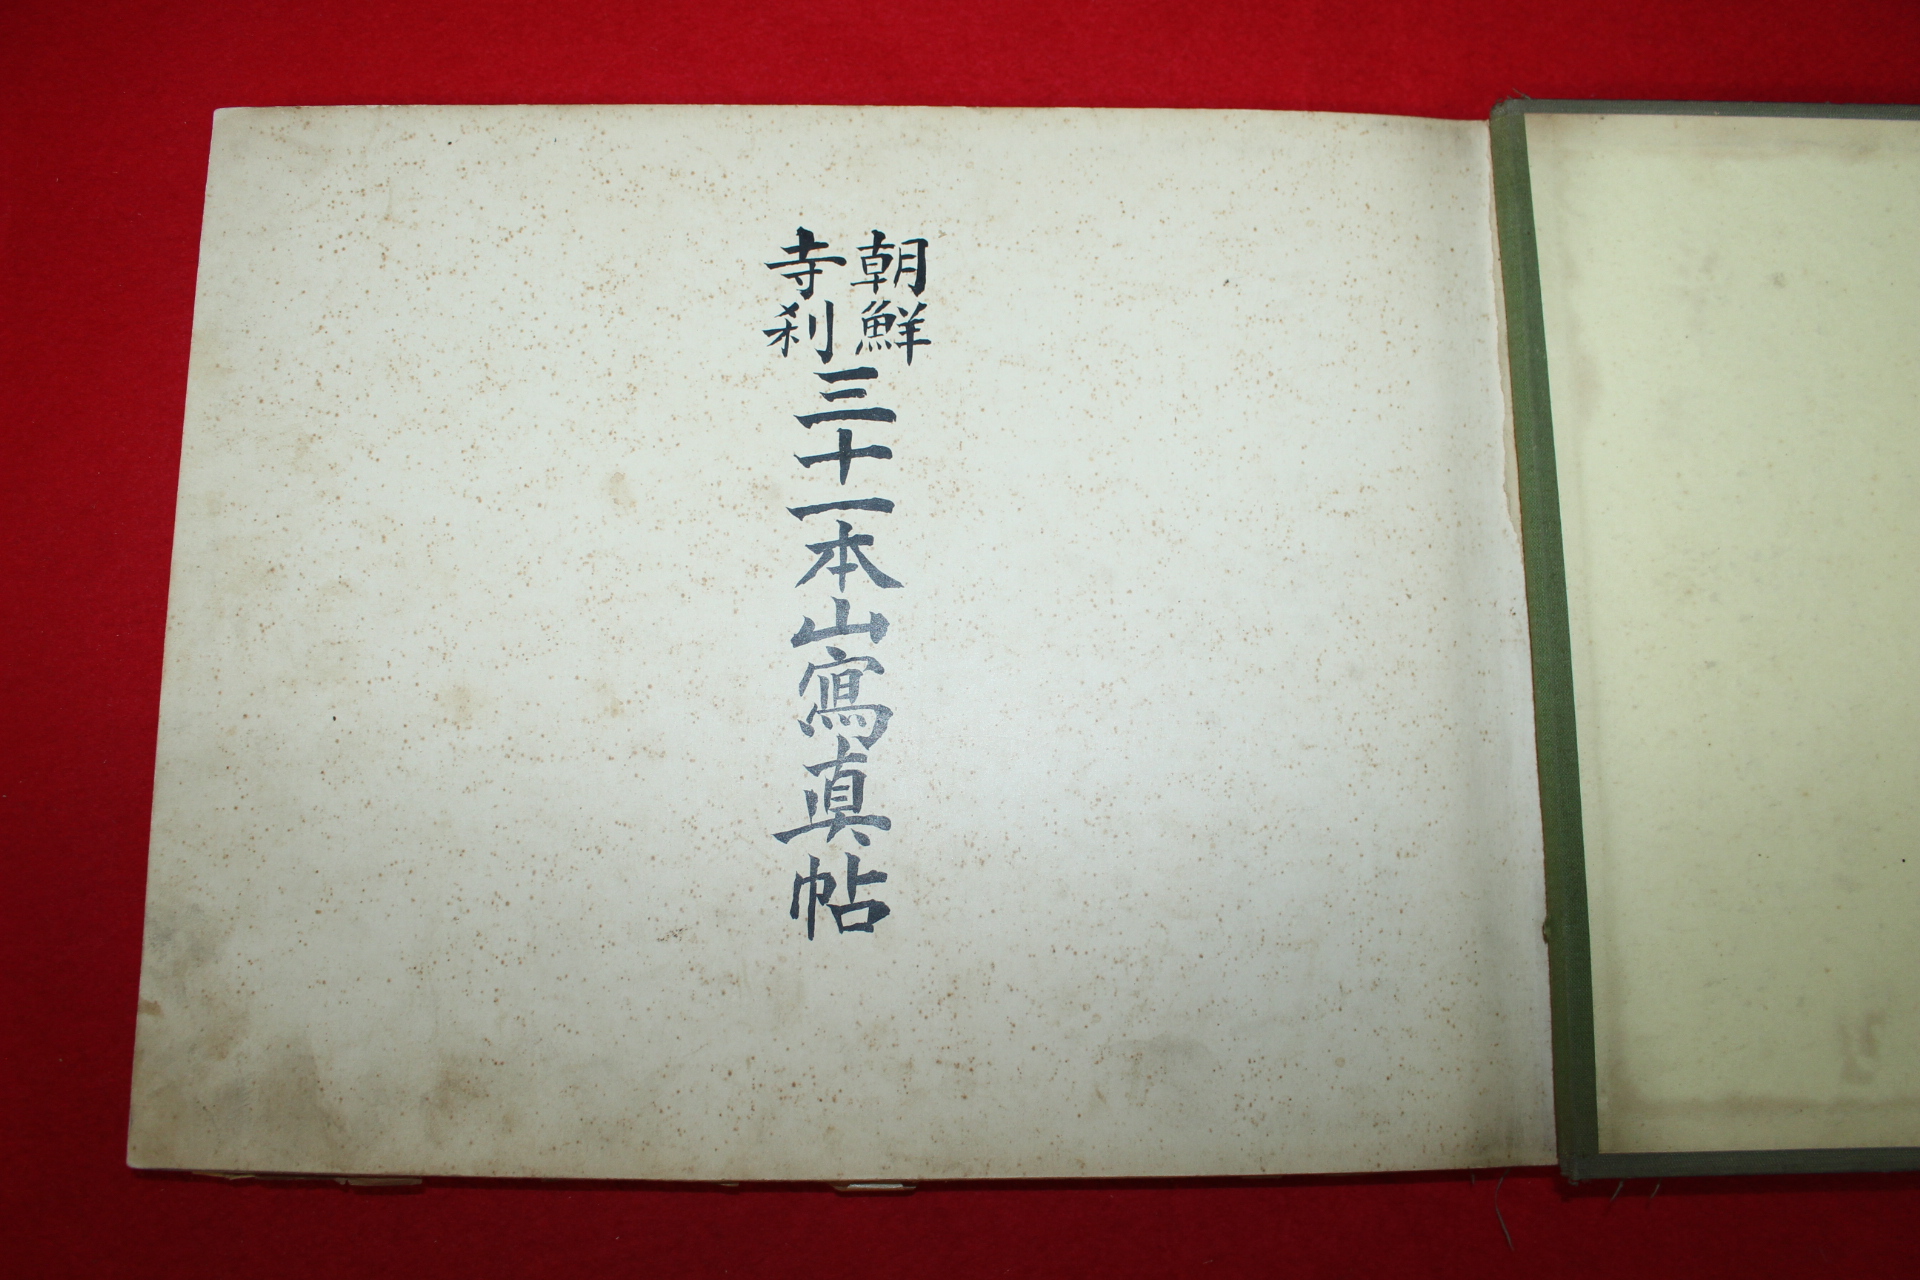 朝鮮
寺刹
三十一本山寫眞帖